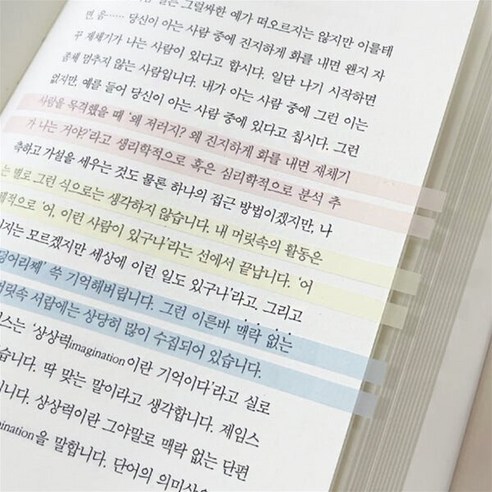 그럴싸한 예가 떠오르지는 않지만 이를테
면, 음…… 당신이 아는 사람 중에 진지하게 화를 내면 왠지 자
꾸 재채기가 나는 사람이 있다고 합시다. 일단 나기 시작하면
좀체 멈추지 않는 사람입니다. 내가 아는 사람 중에 그런 이는
없지만, 예를 들어 당신이 아는 사람 중에 있다고 칩시다. 그런
사람을 목격했을 때 '왜 저러지? 왜 진지하게 화를 내면 재채기
가 나는 거야?'라고 생리학적으로 혹은 심리학적으로 분석 추
측하고 가설을 세우는 것도 물론 하나의 접근 방법이겠지만, 나
는 별로 그런 식으로는 생각하지 않습니다. 내 머릿속의 활동은
적으로 '어, 이런 사람이 있구나'라는 선에서 끝납니다. '어
지는 모르겠지만 세상에 이런 일도 있구나'라고, 그리고
덩어리째' 쓱 기억해버립니다. 그런 이른바 맥락 없는
머릿속 서랍에는 상당히 많이 수집되어 있습니다.
스는 '상상력imagination이란 기억이다'라고 실로
습니다. 딱 맞는 말이라고 생각합니다. 제임스
니다. 상상력이란 그야말로 맥락 없는 단편
agination을 말합니다. 단어의 의미상